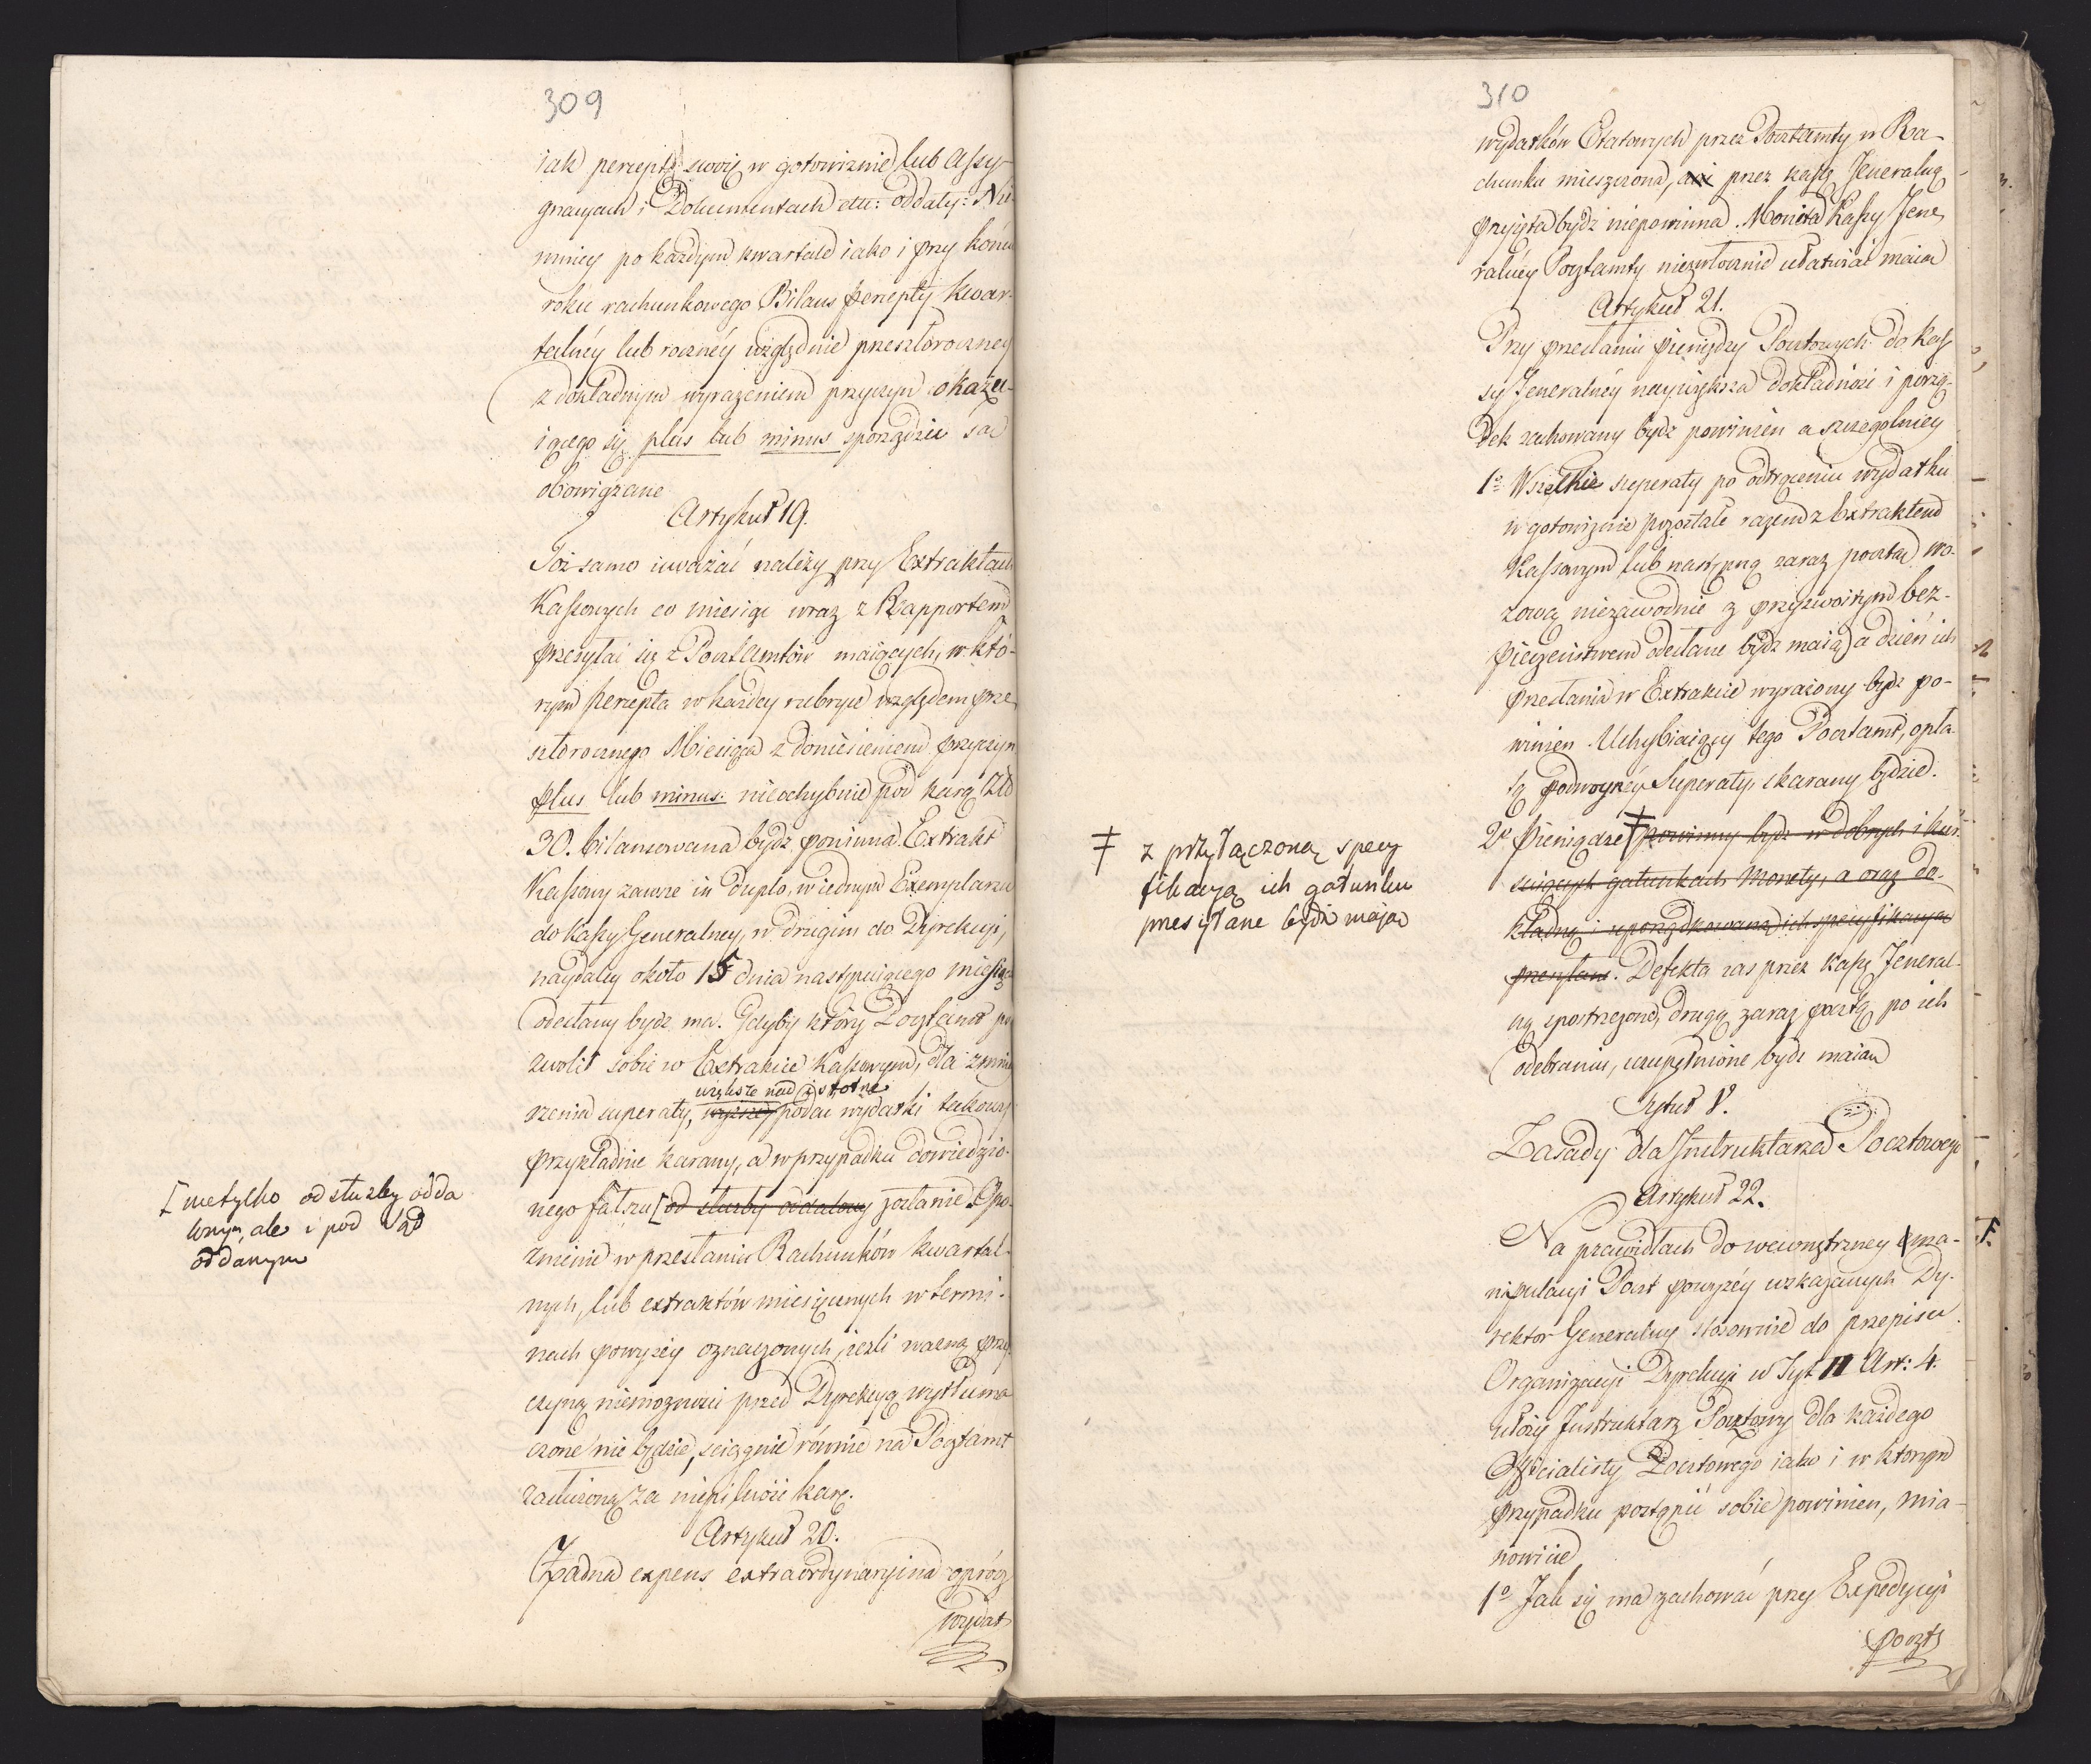 309
iak perceptę swoię w gotowiznie lub Assy-
gnacyach i Dokumentach etc: oddały: Nie
mniey po każdym kwartale iako i przy końcu
roku rachunkowego Bilans percepty kwar-
talnéy lub rocznéy względnie przeszłoroczney
z dokładnym wyrażeniem przyczyn okazu-
iącego się plus lub minus sporządzić są
obowiązane
Artykuł 19.
Toż samo uważać należy przy Extraktach
Kassowych co miesiąc wraz z Rapportem
przesyłać się z Pocztamtów maiących, w któ-
rym percepta w każdey rubryce względem prze
szłorocznego Miesiąca z doniesieniem przyczyn
plus lub minus. nieochybnie pod karą Złp
30. bilansowana bydź powinna. Extrakt
Kassowy zawsze in duplo, w iednym Exemplarzu
do Kassy Generalney, w drugim do Dyrekcyi,
naydaley około 15 dnia następuiącego miesiąca
odesłany bydź ma. Gdyby który Pocztamt po
zwolił sobie w Extrakcie Kassowym, dla zmniey
większe nad istotne
szenia superaty, wyższe podać wydatki takowy
przykładnie karany, a w przypadku dowiedzio-
nego fałszu [od służby oddalony zostanie. Opo-
źnienie w przesłaniu Rachunków kwartal-
nych, lub extraktów miesięcznych w termi-
nach powyżey oznaczonych, ieżli ważną przy
czyną niemożności przed Dyrekcyą wytłuma
czone nie będzie, ściągnie równie na Pocztamt
zasłużoną za niepilność karę.
Artykuł 20.
Żadna expens extraordynaryina oprócz
wydat
[ nietylko od służby odda
lonym, ale i pod Sąd
oddanym
310
wydatków Etatowych przez Pocztamty w Ra-
chunku mieszczona, ani przez kassę Jeneralną
przyięta bydź niepowinna. Monita Kassy Jene
ralnéy Pocztamty niezwłocznie ułatwiać maią
Artykuł 21.
Przy przesłaniu pieniędzy Pocztowych do Kas
sy Jeneralnéy naywiększa dokładność i porzą-
dek zachowany bydź powinien a szczególniey
1o Wszelkie superaty po odtrąceniu wydatku
w gotowiznie pozostałe razem z Extraktem
Kassowym lub następną zaraz pocztą wo-
zową niezawodnie z przyzwoitym bez-
pieczeństwem odesłane bydź maią, a dzień ich
przesłania w Extrakcie wyrażony bydź po-
winien. Uchybiaiący tego Pocztamt, opła
tą podwóynéy Superaty, skarany będzie.
2o Pieniądze ‡ powinny bydź w dobrych i kur-
suiących gatunkach Monety, a oraz do-
kładną i uporządkowaną ich specyfikacyą
przesłane. Defekta zaś przez Kassę Jeneral-
ną spostrzeżone, drugą zaraz pocztą po ich
odebraniu, uzupełnione bydź maią
Tytuł V.
Zasady dla Instruktarza Pocztowego
Artykuł 22.
Na prawidłach do wewnętrzney ma-
nipulacyi Poczt powyżéy wskazanych Dy-
rektor Generalny stosownie do przepisu
Organizacyi Dyrekcyi w Tyt II Art: 4.
ułoży Instruktarz Pocztowy dla każdego
Officialisty Pocztowego iako i w którym
przypadku postąpić sobie powinien, mia-
nowicie
1o Jak się ma zachować przy Expedycyi
poczt
‡ z przyłączoną specy
fikacyą ich gatunku
przesyłane bydź maią